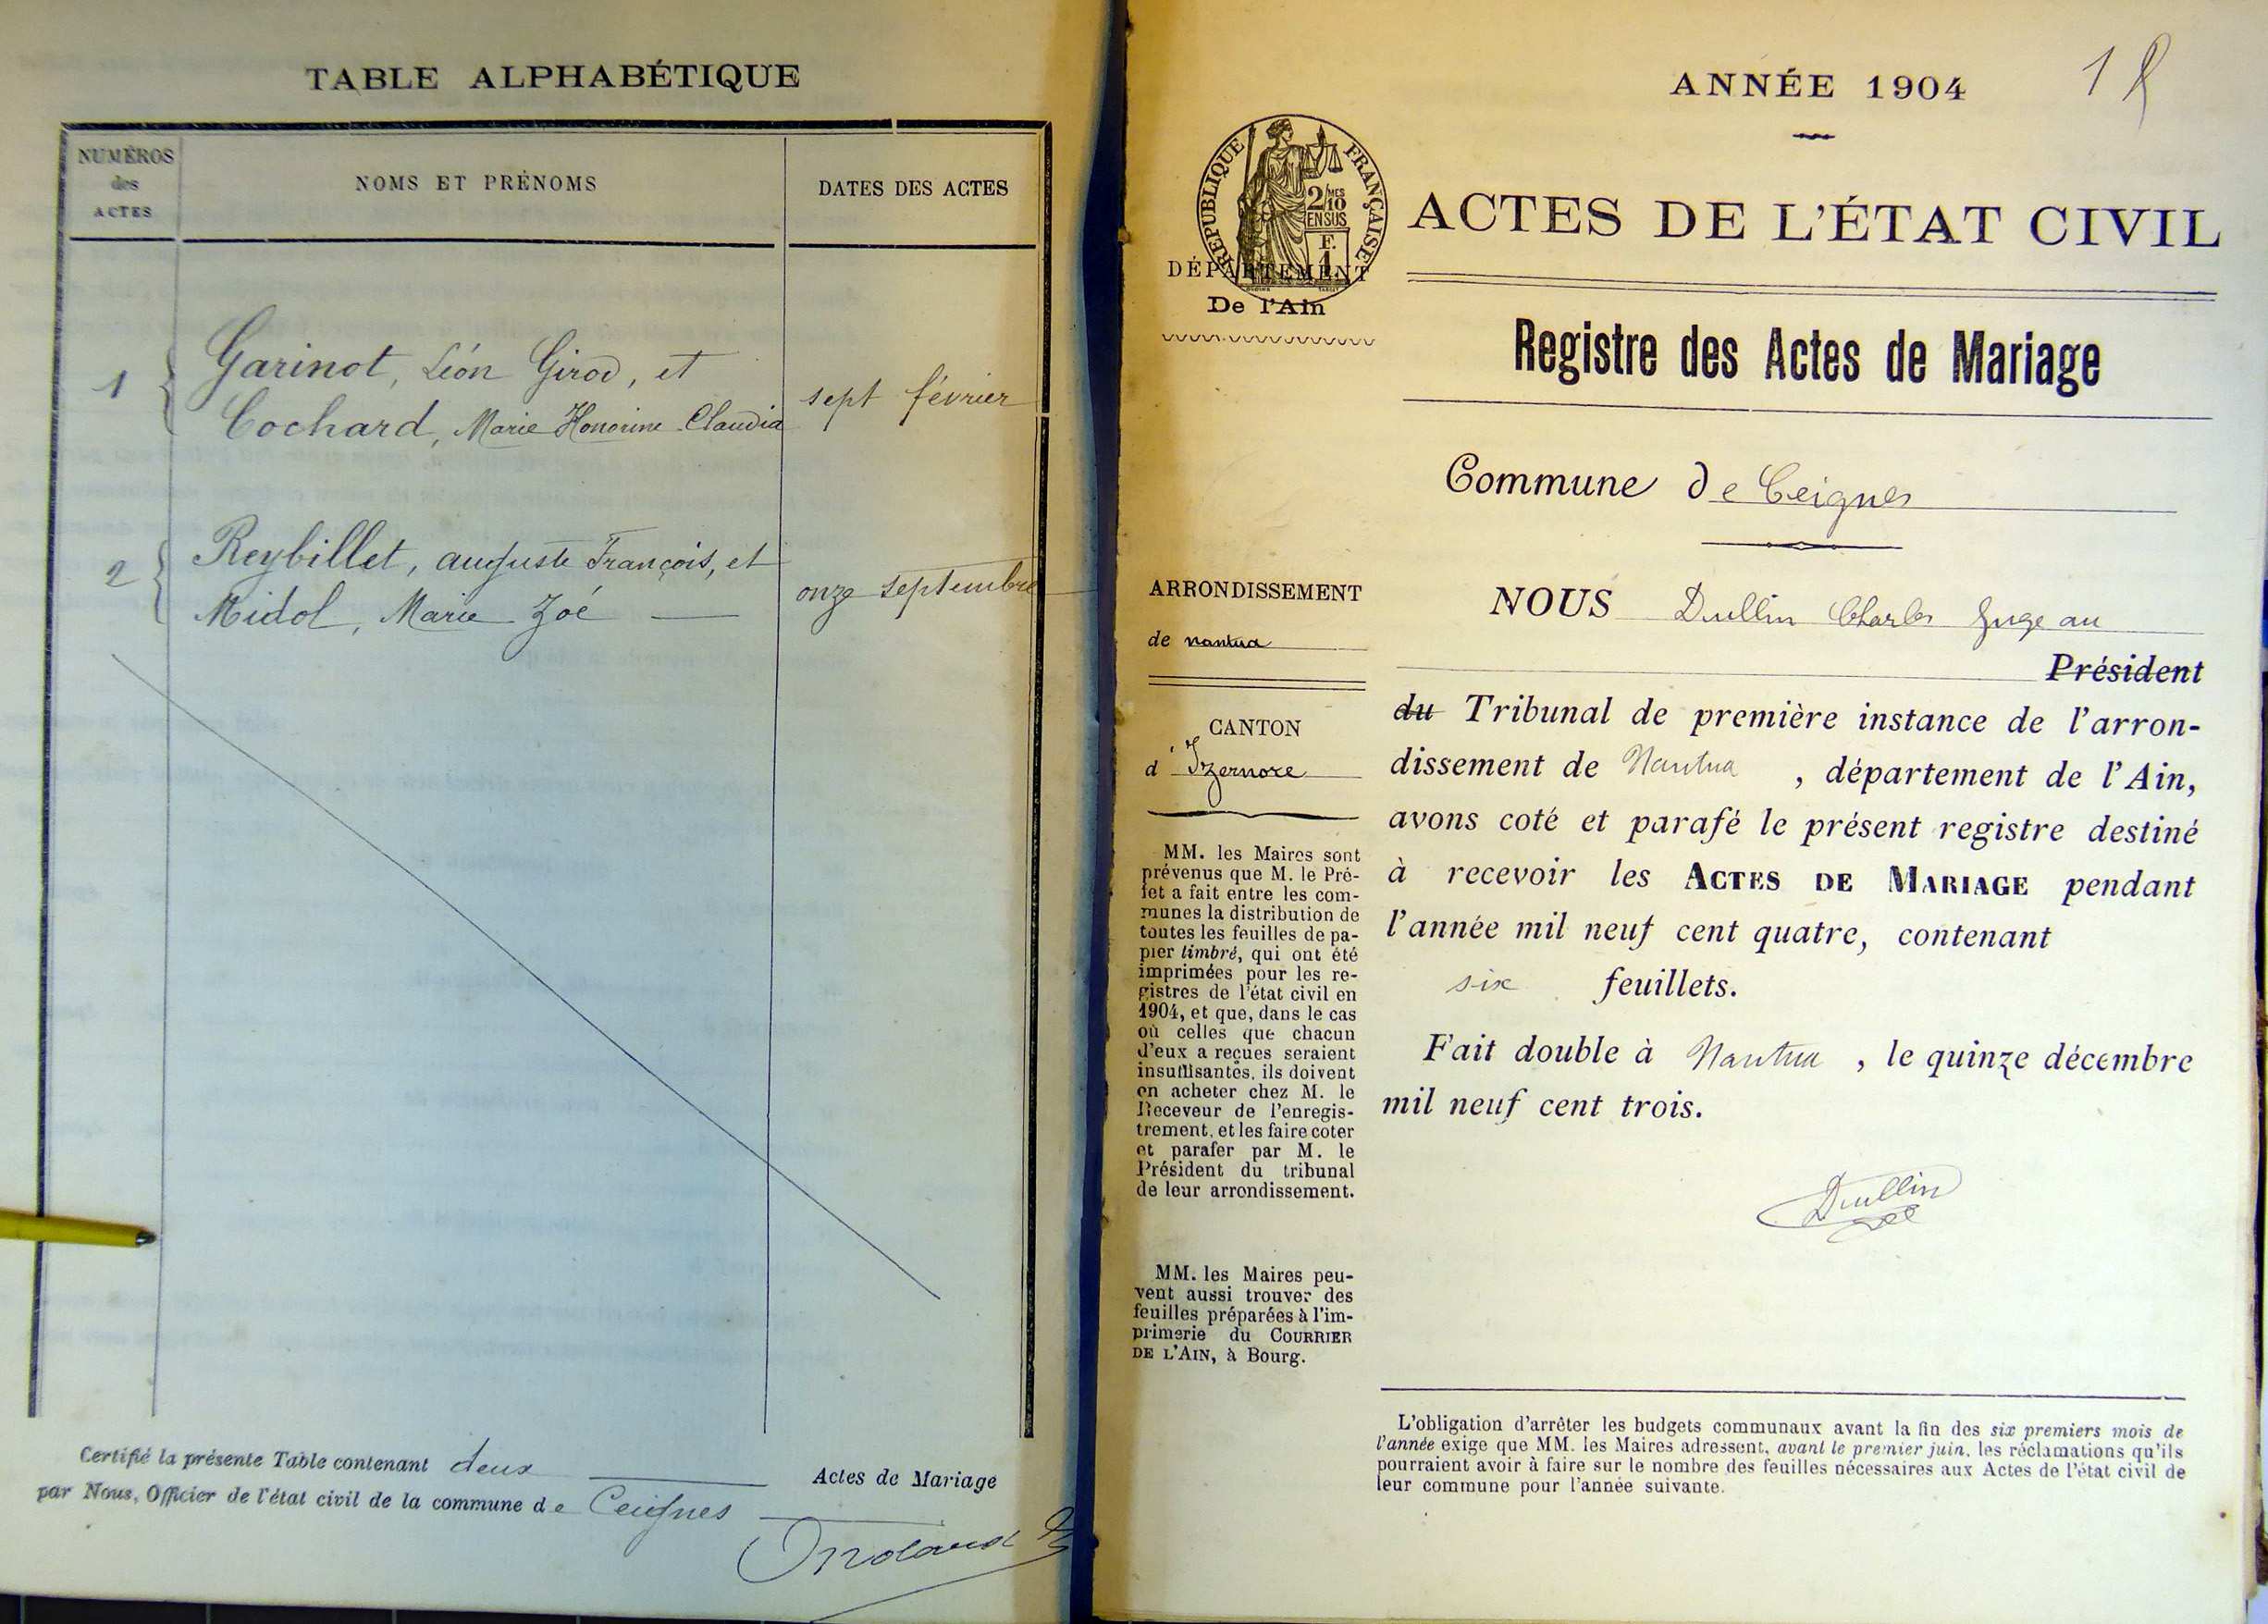 TABLE ALPHABÉTIQUE
NUMÉROS
des
ACTES
NOMS ET PRÉNOMS
DATES DES ACTES
1
Garinot, Léon Girod, et
Cochard, Marie Honorine Claudia
sept février
2
Reybillet, auguste François, et
Midol, Marie Zoé
onze septembre
Certifié la présente Table contenant deux Actes de Mariage
par Nous, Officier de l'état civil de la commune de Ceignes
ANNÉE 1904
ACTES DE L'ÉTAT CIVIL
RÉPUBLIQUE FRANÇAISE
2/10 MES
EN SUS
F.
1
DÉPARTEMENT
De l'Ain
Registre des Actes de Mariage
Commune de Ceignes
ARRONDISSEMENT
de nantua
CANTON
d'Izernore
MM. les Maires sont
prévenus que M. le Pré-
fet a fait entre les com-
munes la distribution de
toutes les feuilles de pa-
pier timbré, qui ont été
imprimées pour les re-
gistres de l'état civil en
1904, et que, dans le cas
où celles que chacun
d'eux a reçues seraient
insuffisantes, ils doivent
en acheter chez M. le
Receveur de l'enregis-
trement, et les faire coter
et parafer par M. le
Président du tribunal
de leur arrondissement.
MM. les Maires peu-
vent aussi trouver des
feuilles préparées à l'im-
primerie du COURRIER
DE L'AIN, à Bourg.
NOUS Dullin Charles Juge au
Président
du Tribunal de première instance de l'arron-
dissement de Nantua, département de l'Ain,
avons coté et parafé le présent registre destiné
à recevoir les ACTES DE MARIAGE pendant
l'année mil neuf cent quatre, contenant
six feuillets.
Fait double à Nantua, le quinze décembre
mil neuf cent trois.
Dullin
L'obligation d'arrêter les budgets communaux avant la fin des six premiers mois de
l'année exige que MM. les Maires adressent, avant le premier juin, les réclamations qu'ils
pourraient avoir à faire sur le nombre des feuilles nécessaires aux Actes de l'état civil de
leur commune pour l'année suivante.